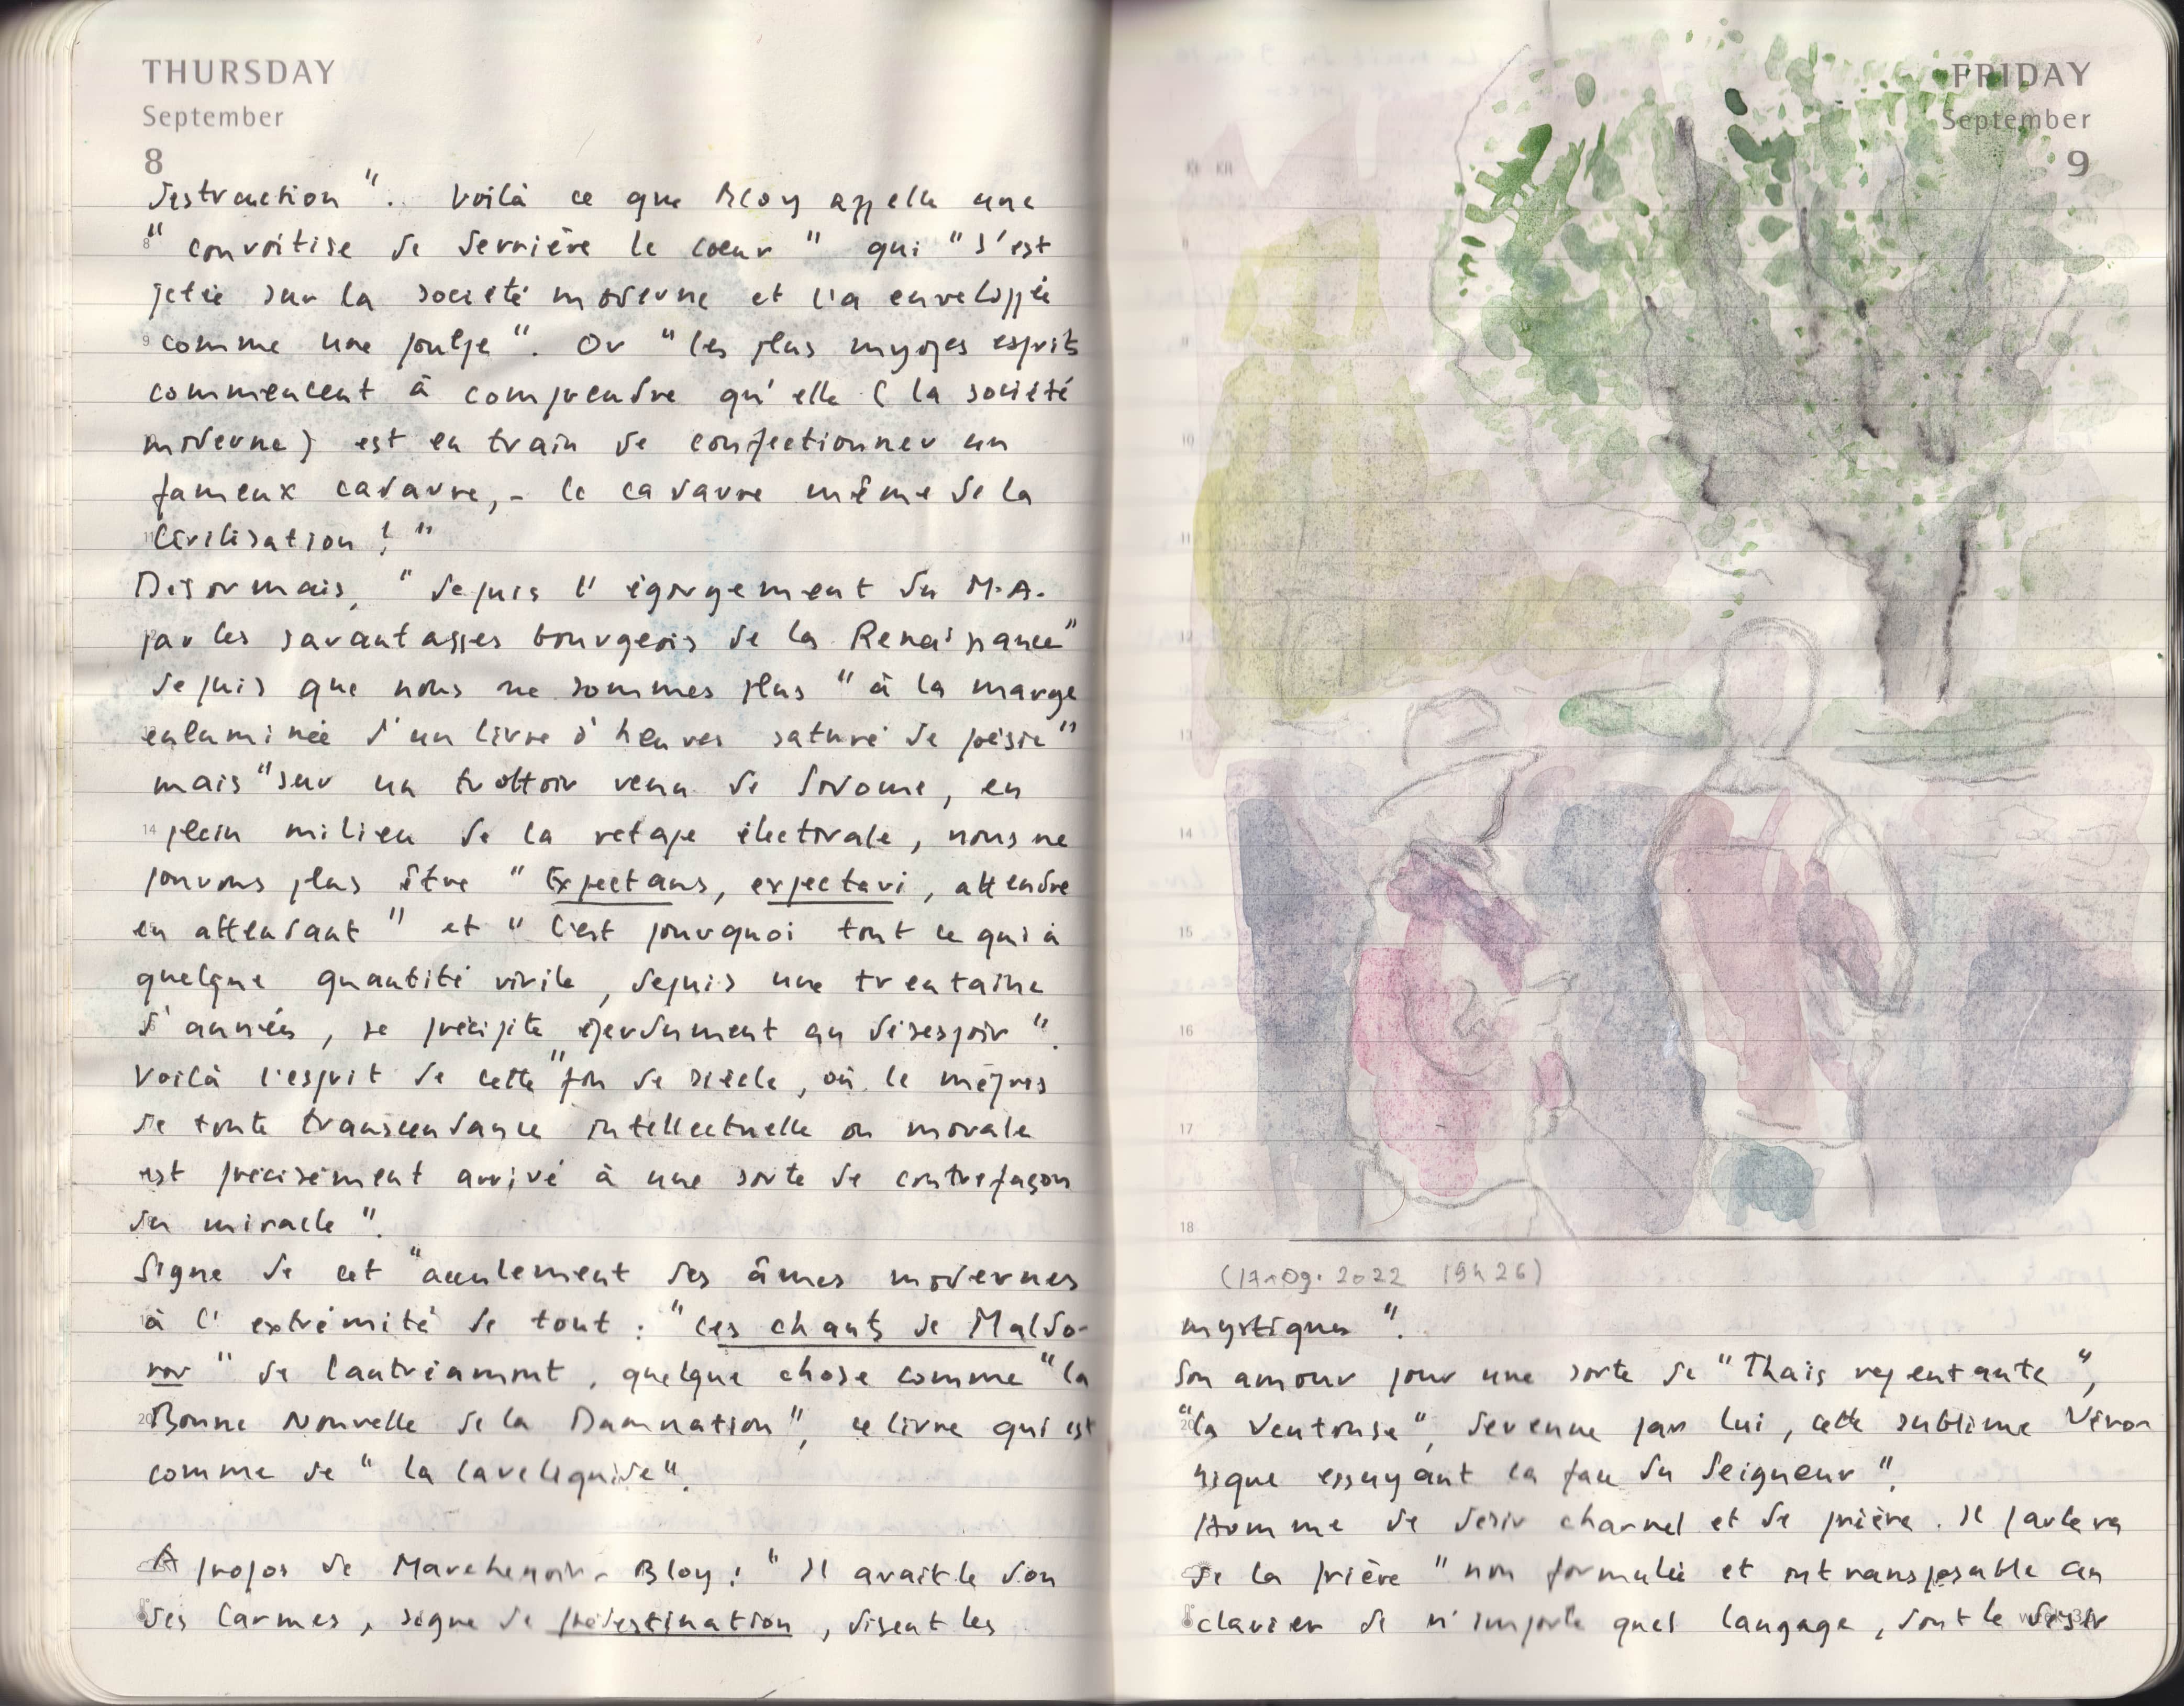 THURSDAY
September
8
destruction". Voilà ce que Bloy appelle une
"convoitise de derrière le coeur" qui "s'est
jetée sur la société moderne et l'a enveloppée
comme une poulpe". Or "les plus myopes esprits
commencent à comprendre qu'elle (la société
moderne) est en train de confectionner un
fameux cadavre, - le cadavre même de la
Civilisation!"
Désormais, "depuis l'égorgement du M.A.
par les savantasses bourgeois de la Renaissance"
depuis que nous ne sommes plus "à la marge
enluminée d'un livre d'heures saturé de poésie"
mais "sur un trottoir venu de Sodome, en
plein milieu de la retape électorale, nous ne
pouvons plus être "Expectans, expectavi, attendre
en attendant" et "C'est pourquoi tout ce qui a
quelque quantité virile, depuis une trentaine
d'années, se précipite éperdument au désespoir".
Voilà l'esprit de cette "fin de siècle, où le mépris
de toute transcendance intellectuelle ou morale
est précisément arrivé à une sorte de contrefaçon
du miracle".
Signe de cet "acculement des âmes modernes
à l'extrémité de tout : "Les chants de Maldo-
ror" de Lautréamont, quelque chose comme "la
Bonne Nouvelle de la Damnation", ce livre qui est
comme de "la lave liquide".
A propos de Marchenoir - Bloy : "Il avait le don
des larmes, signe de prédestination, disent les
FRIDAY
September
9
8
9
10
11
12
13
14
15
16
17
18
(17.09.2022 19h26)
mystiques".
Son amour pour une sorte de "Thaïs repentante",
"la Ventouse", devenue par lui, cette sublime Véro
nique essuyant la face du Seigneur".
Homme de désir charnel et de prière. Il parlera
de la prière "non formulée et intransposable au
clavier de n'importe quel langage, dont le désir